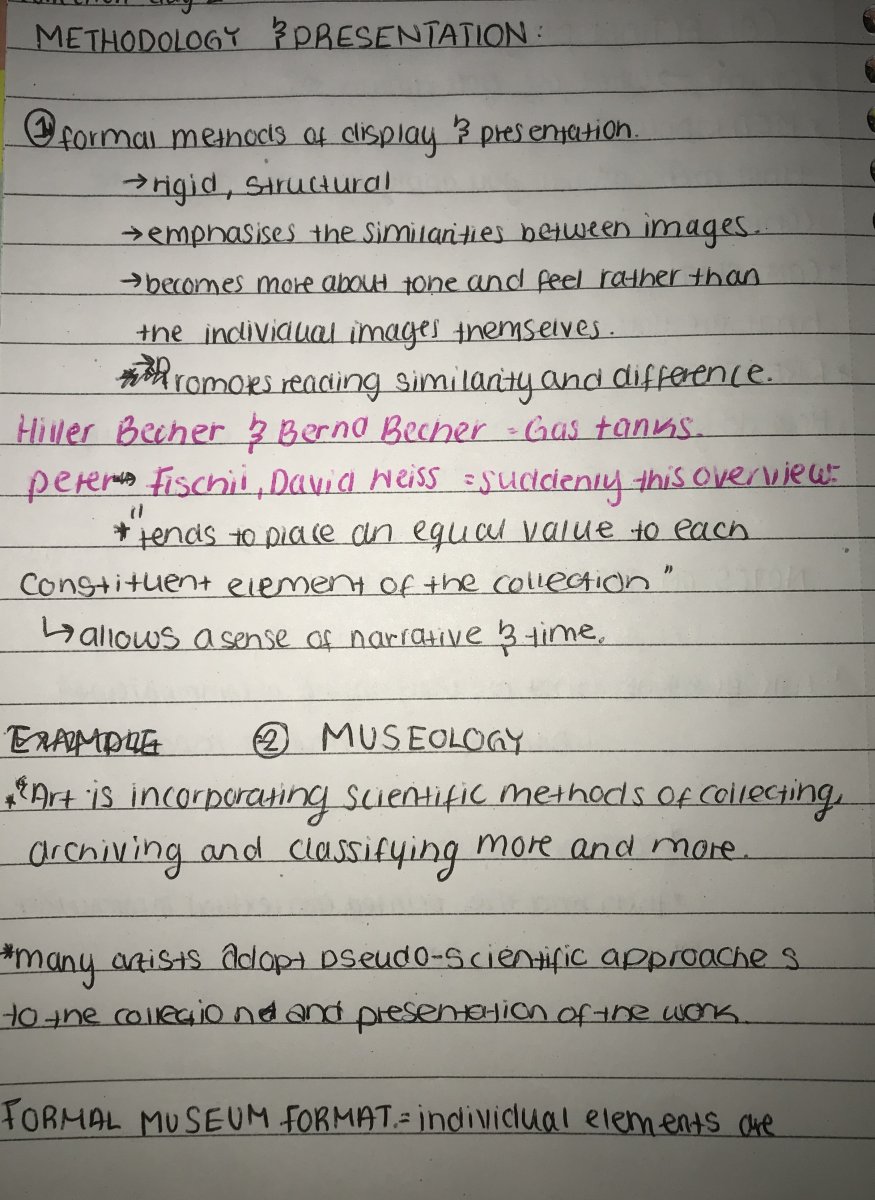 METHODOLOGY & PRESENTATION:
① formal methods of display & presentation.
→ rigid, structural
→ emphasises the similarities between images.
→ becomes more about tone and feel rather than
the individual images themselves.
→ Promotes reading similarity and difference.
Hiller Becher & Bernd Becher - Gas tanks.
peter Fischli, David Weiss = suddenly this overview.
* "tends to place an equal value to each
constituent element of the collection"
↳ allows a sense of narrative & time.
EXAMPLE ② MUSEOLOGY
* "Art is incorporating scientific methods of collecting,
archiving and classifying more and more.
* many artists adopt pseudo-scientific approaches
to the collection and presentation of the work.
FORMAL MUSEUM FORMAT. = individual elements are